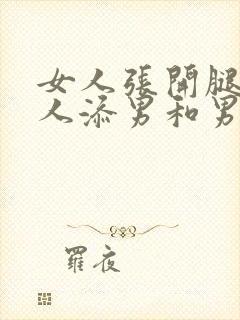 女人張開腿
人添男和男
羅夜